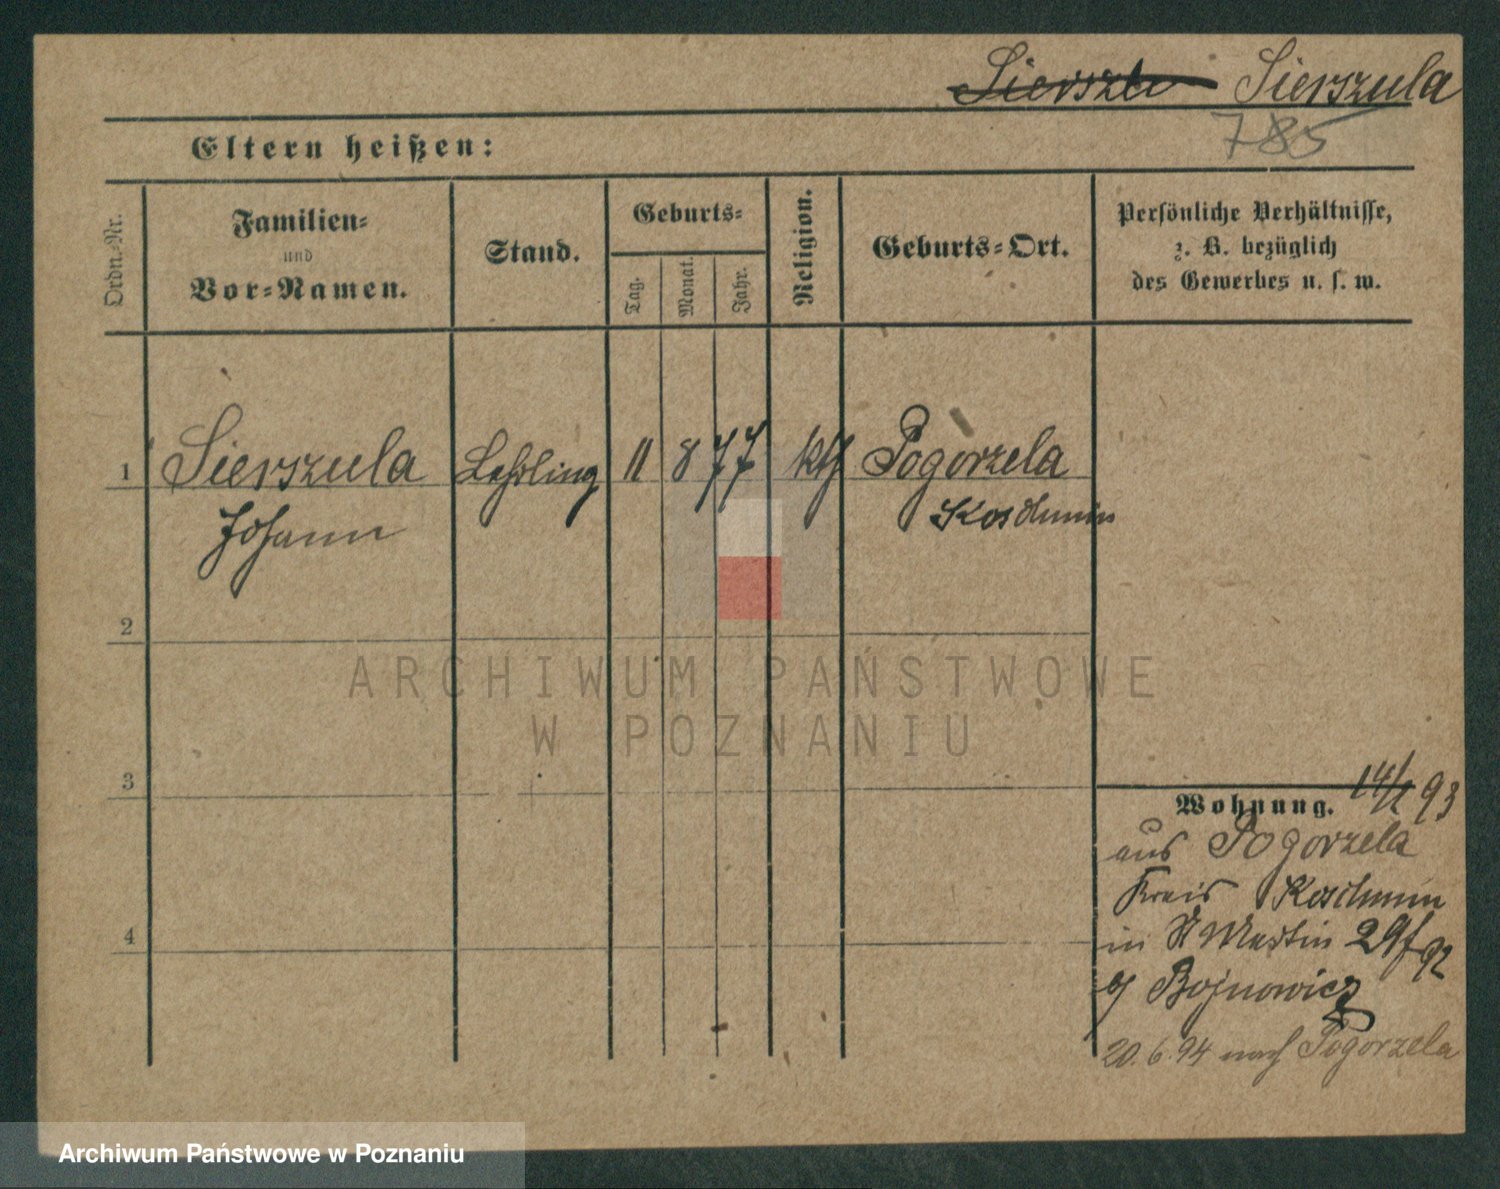 Sierszula
785
Eltern heißen:
Ordn.-Nr.
Familien-
und
Vor-Namen.
Stand.
Geburts-
Tag.
Monat.
Jahr.
Religion.
Geburts-Ort.
Persönliche Verhältnisse,
z. B. bezüglich
des Gewerbes u. s. w.
1 Sierszula Lehrling 11 8 77 kth Pogorzela
Johann Koschmin
2
ARCHIWUM PAŃSTWOWE
W POZNANIU
3
Wohnung. 93
aus Pogorzela
Kreis Koschmin
in St Martin 29
Bojnowicz
20.6.94 nach Pogorzela
4
Archiwum Państwowe w Poznaniu